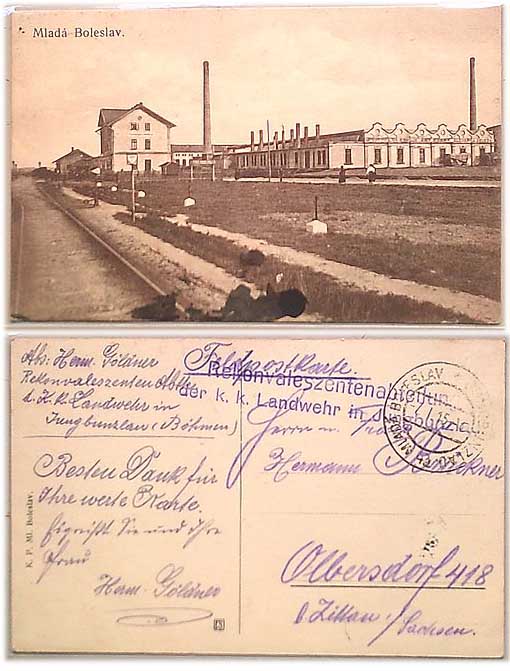 Mladá Boleslav.
Abs: Herm. Göldner
Rekonvaleszenten Abtlg.
d. k. k. Landwehr in
Jungbunzlau (Böhmen)
Besten Dank für
Ihre werte Karte.
Sie und ihre
Frau
Herm. Göldner
K. P. Ml. Boleslav.
Feldpostkarte.
Rekonvaleszentenabteilung
der k. k. Landwehr in Jungbunzlau
MLADÁ BOLESLAV
Herrn u.
Hermann
Olbersdorf 418
b. Zittau / Sachsen.